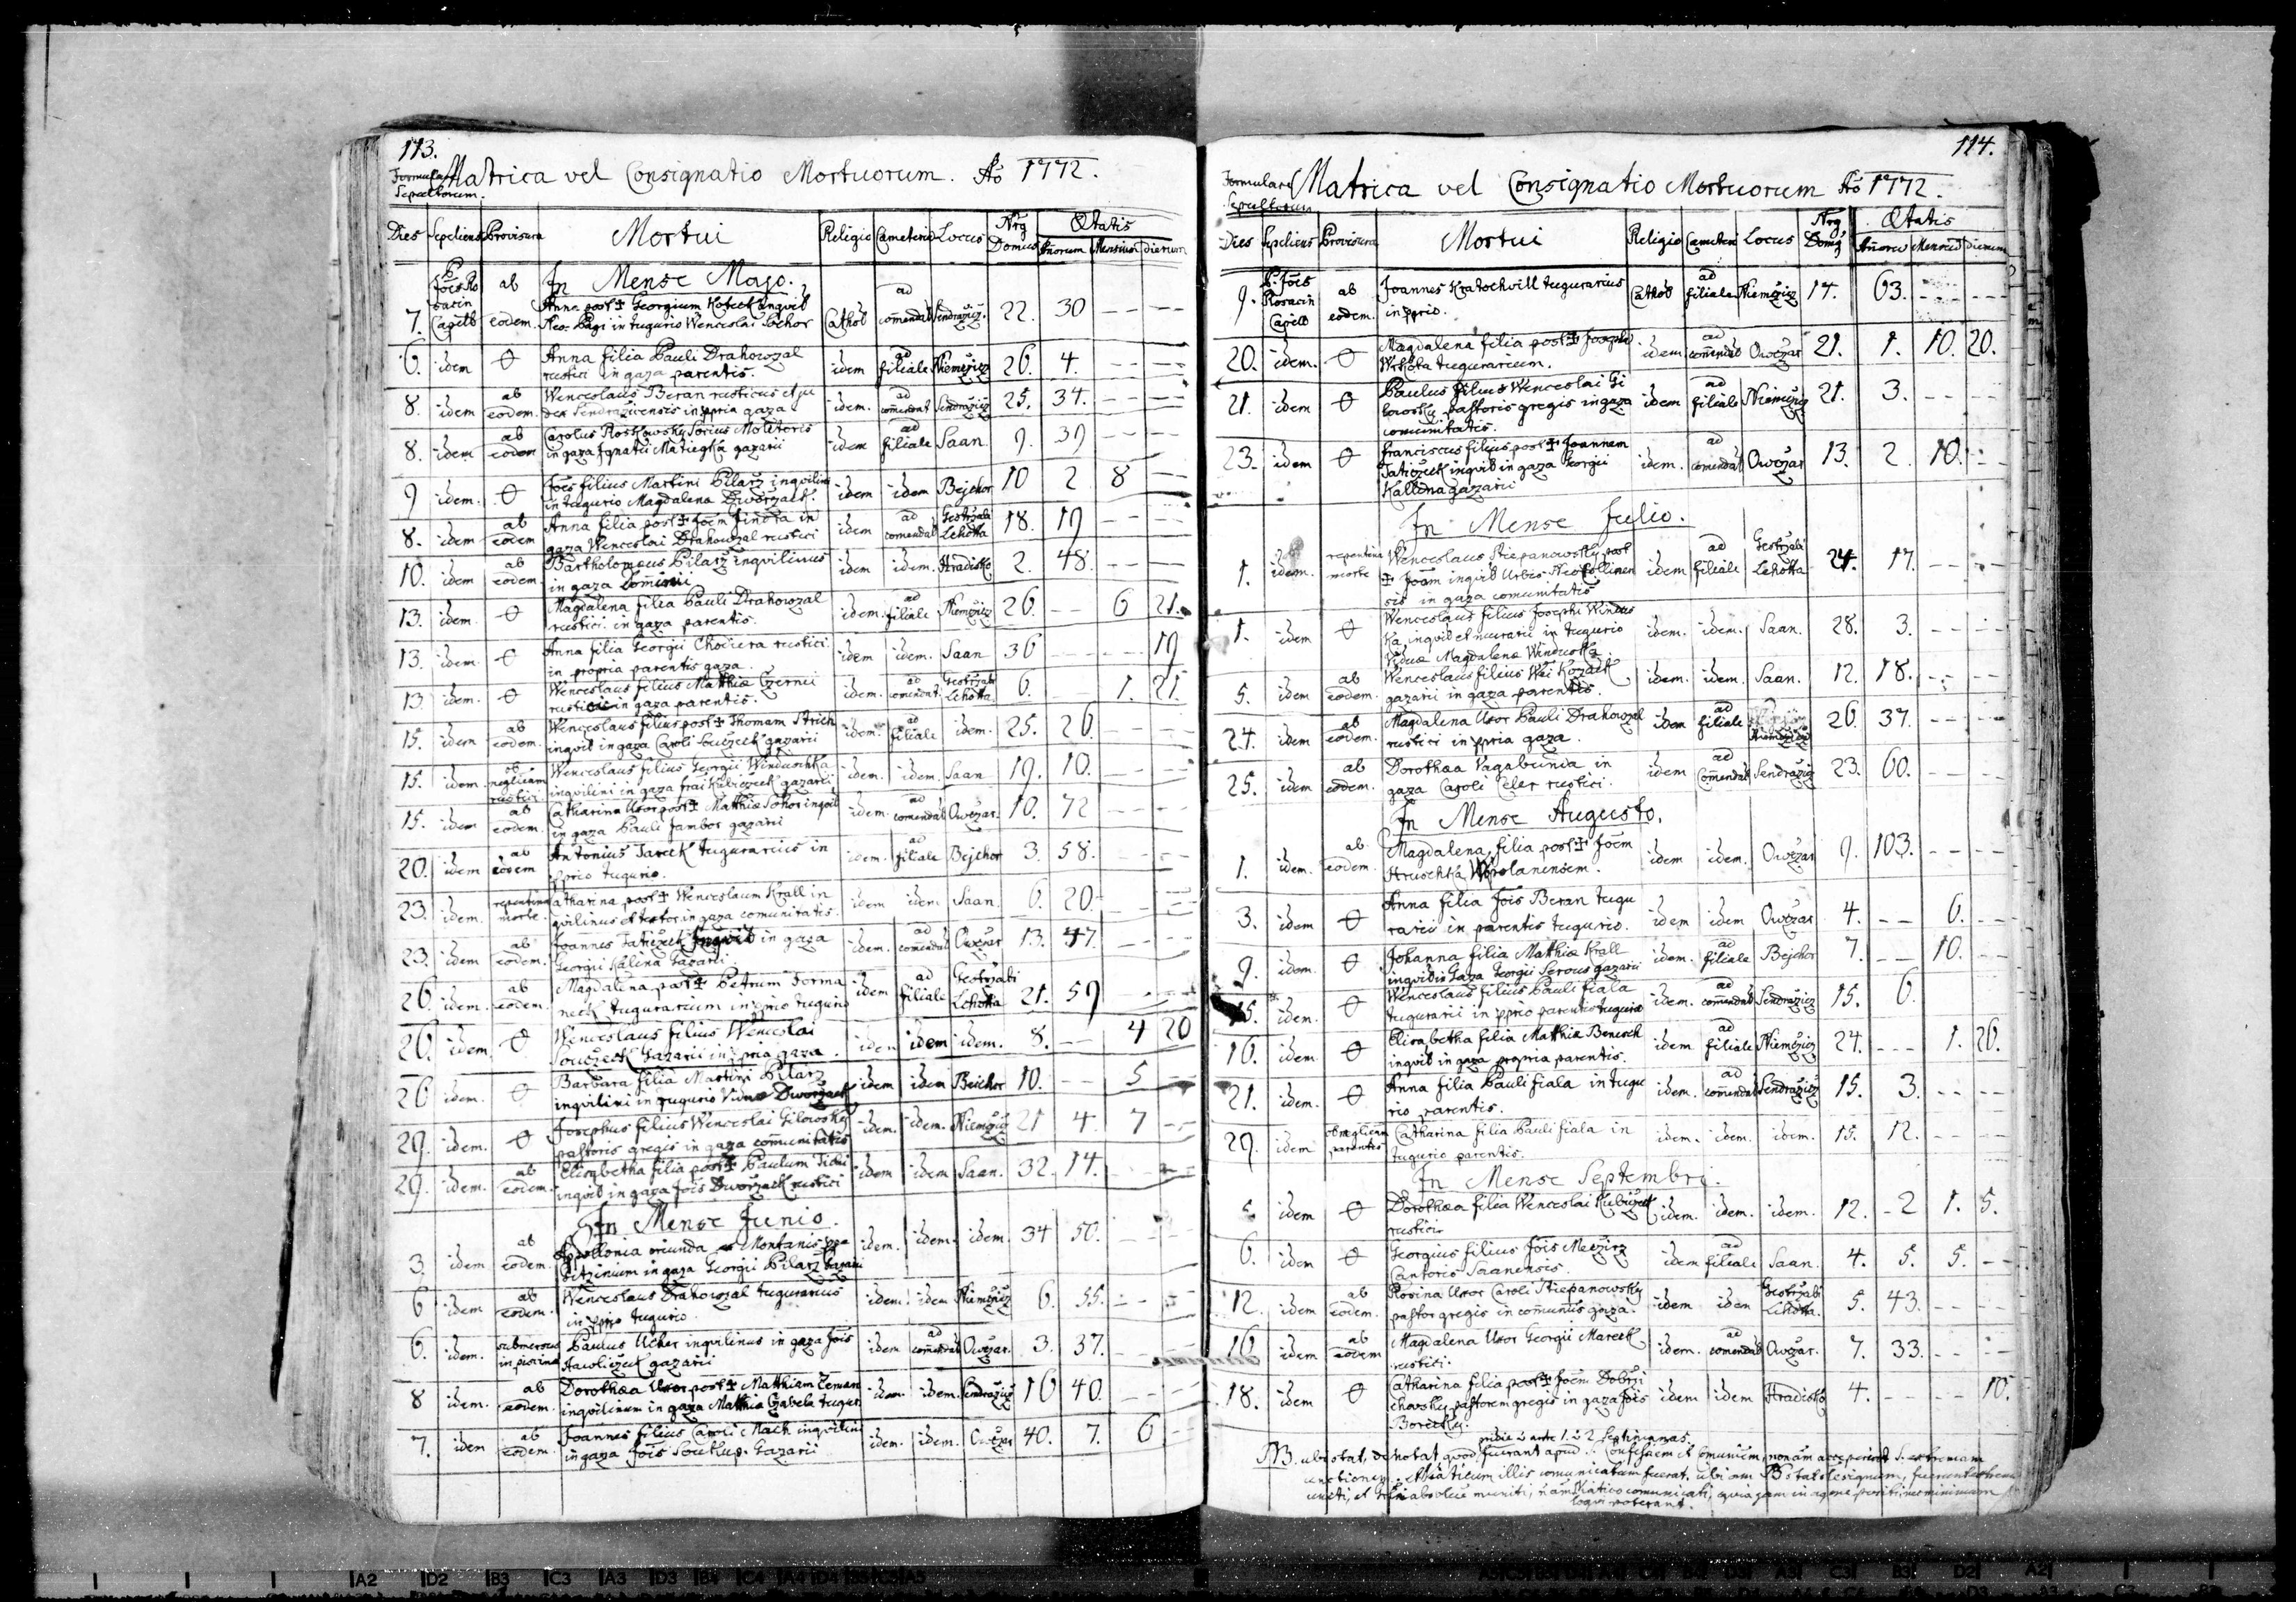 113.
Formulare Sepultorum.
Matrica vel Consignatio Mortuorum. Aõ 1772.
Dies Sepeliens Provisura Mortui Religio Cameteriũ Locus Nrg Domus Ætatis
Añorum Mensium dierum
In Mense Majo.
7. P. Joẽs Rosacin Capell ab eodem. Anna post ‡ Georgium Kotek inqvil
Neo-Pagi in tugurio Wenceslai Sochor Cathol ad comendat Sendražicz. 22. 30 -- -- --
6. idem ꝋ Anna filia Pauli Drahowzal
rustici in gaza parentis. idem ad filiale Niemcžicz 26. 4. -- --
8. idem ab eodem. Wenceslaus Beran rusticus et ju
dex Sendrazicensis in ppria gaza idem. ad comendat Sendražicz 25. 34. -- --
8. idem ab eodem Carolus Roskowsky Socius Molitoris
in gaza Ignatii Matiegka gazarii idem ad filiale Saan. 9. 39 -- --
9 idem. ꝋ Joẽs filius Martini Pilarz inqvilini
in tugurio Magdalena Dworzack. idem idem Bejchor 10 2 8 --
8. idem ab eodem Anna filia post ‡ Joẽm Jindra in
gaza Wenceslai Drahowzal rustici idem ad comendat Gestržabi Lehotta 18. 19 -- --
10. idem ab eodem Bartholomæus Pilarž inqvilinus
in gaza Dominii idem idem. Hradisko 2. 48. -- --
13. idem. ꝋ Magdalena filia Pauli Drahowzal
rustici in gaza parentis. idem. ad filiale Niemcžicz 26. -- 6 21.
13. idem. ꝋ Anna filia Georgii Chocžera rustici
in propria parentis gaza. idem idem. Saan 36 -- -- 19
13. idem ꝋ Wenceslaus filius Mathiæ Czernii
rustici in gaza parentis. idem. ad comendat. Gestržabi Lehotta. 6. -- 1. 21.
15. idem ab eodem. Wenceslaus filius post ‡ Thomam Strich
inqvil in gaza Caroli Soucžek gazarii idem. ad filiale idem. 25. 26. -- --
15. idem ob negligem rustici Wenceslaus filius Georgii Winduschka
inqvilini in gaza Kubicžeck gazarii idem. idem. Saan 19. 10. -- --
15. idem ab eodem. Catharina Uxor post ‡ Mathiæ Sohor inqvil
in gaza Pauli Jambor gazarii idem. ad comendat Owcžar. 10. 72 -- --
20. idem ab eodem Antonius Tareck tugurarius in
pprio tugurio. idem. ad filiale Bejchor 3. 58. -- --
23. idem. repentina morte. Catharina post ‡ Wenceslaum Krall in
qvilinus et textor in gaza comunitatis. idem idem Saan. 6. 20. -- --
23. idem ab eodem. Joannes Taticžek Inqvil in gaza
Georgii Kalina Gazarii. idem. ad comendat Owcžar 13. 47. -- --
26. idem. ab eodem. Magdalena post ‡ Petrum Forma
neck tugurarium in pprio tugurio idem ad filiale Gestržabi Lehotta 21. 59 -- --
26. idem. ꝋ Wenceslaus filius Wenceslai
Soucžeck Gazarii in ppria gaza. idem idem idem. 8. -- 4 20
26 idem. ꝋ Barbara filia Martini Pilarz
inqvilini in tugurio Viduæ Dworžack idem idem Beichor 10. -- 5 --
29. idem. ꝋ Josephus filius Wenceslai Gilowsky
pastoris gregis in gaza comunitatis idem. idem. Niemcžicz 21 4. 7 --
29. idem. ab eodem. Elisabetha filia post ‡ Paulum Tichi
inqvil in gaza Jois Dworžack rustici idem idem Saan. 32. 14. -- --
In Mense Junio.
3. idem ab eodem. Apollonia oriunda ex Montanis
Gitzinium in gaza Georgii Pilarž Gazarii idem. idem. idem. 34 50. -- --
6 idem ab eodem. Wenceslaus Drahowzal tugurarius
in pprio tugurio. idem. idem Niemcžicz 6. 55. -- --
6. idem. submersus in piscina Paulus Ucher inqvilinus in gaza Jois
Hawlicžeck gazarii idem ad comendat Owcžar. 3. 37. -- --
8 idem. ab eodem. Dorothæa Uxor post ‡ Matthiam Zeman
inqvilinum in gaza Mathia Czabela tugur. idem. idem. Sendražicz 16 40. -- --
7. idem ab eodem. Joannes filius Caroli Mach inqvilini
in gaza Jois Soukup. Gazarii idem. idem. Owcžar 40. 7. 6 --
114.
Formulare Sepultorum
Matrica vel Consignatio Mortuorum Aõ 1772.
Dies Sepeliens Provisura Mortui Religio Cameteri Locus Nrg Domg Ætatis
Añorũ Mensiũ Dierum
9. P. Joẽs Rosacin Capell ab eodem. Joannes Kratochvill tugurarius
in pprio. Cathol ad filiale Niemcžicz 14. 63. -- --
20. idem. ꝋ Magdalena filia post ‡ Josephi
Wrkota tugurarium. idem. ad comendat Owcžar 21. 1. 10. 20.
21. idem ꝋ Paulus filius Wenceslai Gi
lowsky pastoris gregis in gaza
comunitatis. idem ad filiale Niemcžicz 21. 3. -- --
23. idem ꝋ Franciscus filius post ‡ Joannem
Taticžeck inqvil in gaza Georgii
Kallina gazarii idem. ad comendat Owcžar 13. 2. 10. --
In Mense Julio.
1. idem. repentina morte Wenceslaus Stiepanowsky post
‡ Joãm inqvil Urbis Neokollinen
sis in gaza comunitatis idem ad filiale Gestržabi Lehotta 24. 17. -- --
1. idem ꝋ Wenceslaus filius Josephi Windus
ka, inqvil et murarii in tugurio
Viduæ Magdalenæ Winduska. idem. idem. Saan. 28. 3. -- --
5. idem ab eodem. Wenceslaus filius Kozack
gazarii in gaza parentis. idem. idem. Saan. 12. 18. -- --
24. idem ab eodem. Magdalena Uxor Pauli Drahowzal
rustici in ppria gaza. idem ad filiale Niemcžicz 26. 37. -- --
25. idem ab eodem. Dorothæa Vagabunda in
gaza Caroli Celer rustici. idem ad Comendat Sendražicz 23. 60. -- --
In Mense Augusto.
1. idem. ab eodem. Magdalena, filia post ‡ Joẽm
Hruschka idem idem. Owcžar 9. 103. -- --
3. idem ꝋ Anna filia Jois Beran tugu
rarii in parentis tugurio. idem idem Owcžar 4. -- 6. --
9. idem. ꝋ Johanna filia Mathiæ Krall
inqvilis Gaza Georgii Serous gazarii idem. ad filiale Bejchor 7. -- 10. --
15. idem. ꝋ Wenceslaus filius Pauli Fiala
tugurarii in pprio parentis tugurio idem. ad comendat Sendražicz 15. 6. --
16. idem. ꝋ Elisabetha filia Mathiæ Benesch
inqvil in gaza propria parentis. idem ad filiale Niemcžicz 24. -- 1. 26.
21. idem. ꝋ Anna filia Pauli Fiala in tugu
rio parentis. idem. ad comendat Sendražicz 15. 3. -- --
29. idem ob negligem parentis Catharina filia Pauli Fiala in
tugurio parentis. idem. idem. idem. 15. 12. -- --
In Mense Septembri.
5 idem ꝋ Dorothæa filia Wenceslai Kubicžeck
rustici idem. idem. idem. 12. 2 1. 5.
6. idem ꝋ Georgius filius Jois Mecžirz
Cantoris Saanensis. idem ad filiale Saan. 4. 5. 5. --
12. idem ab eodem. Rosina Uxor Caroli Stiepanowsky
pastor gregis in comunis gaza. idem idem Gestržabi Lehotta. 5. 43. -- --
16. idem ab eodem Magdalena Uxor Georgii Mareck
rustici. idem. ad comendat Owcžar. 7. 33. -- --
18. idem ꝋ Catharina filia post ‡ Joẽm Dobrži
chovsky pastorem gregis in gaza Jois
Borecky. idem idem Hradisko 4. -- -- 10.
pridie ante 1. 2 septimanas
NB. ubi stat, denotat qvod fuerant apud Confessem et Comunicem, non am acceperint S. extremam
unctionem illis comunicatum fuerat. ubi
uncti, et absolue muniti, Viatico comunicati, qvia jam in agone positi, nec minimum
loqui poterant.